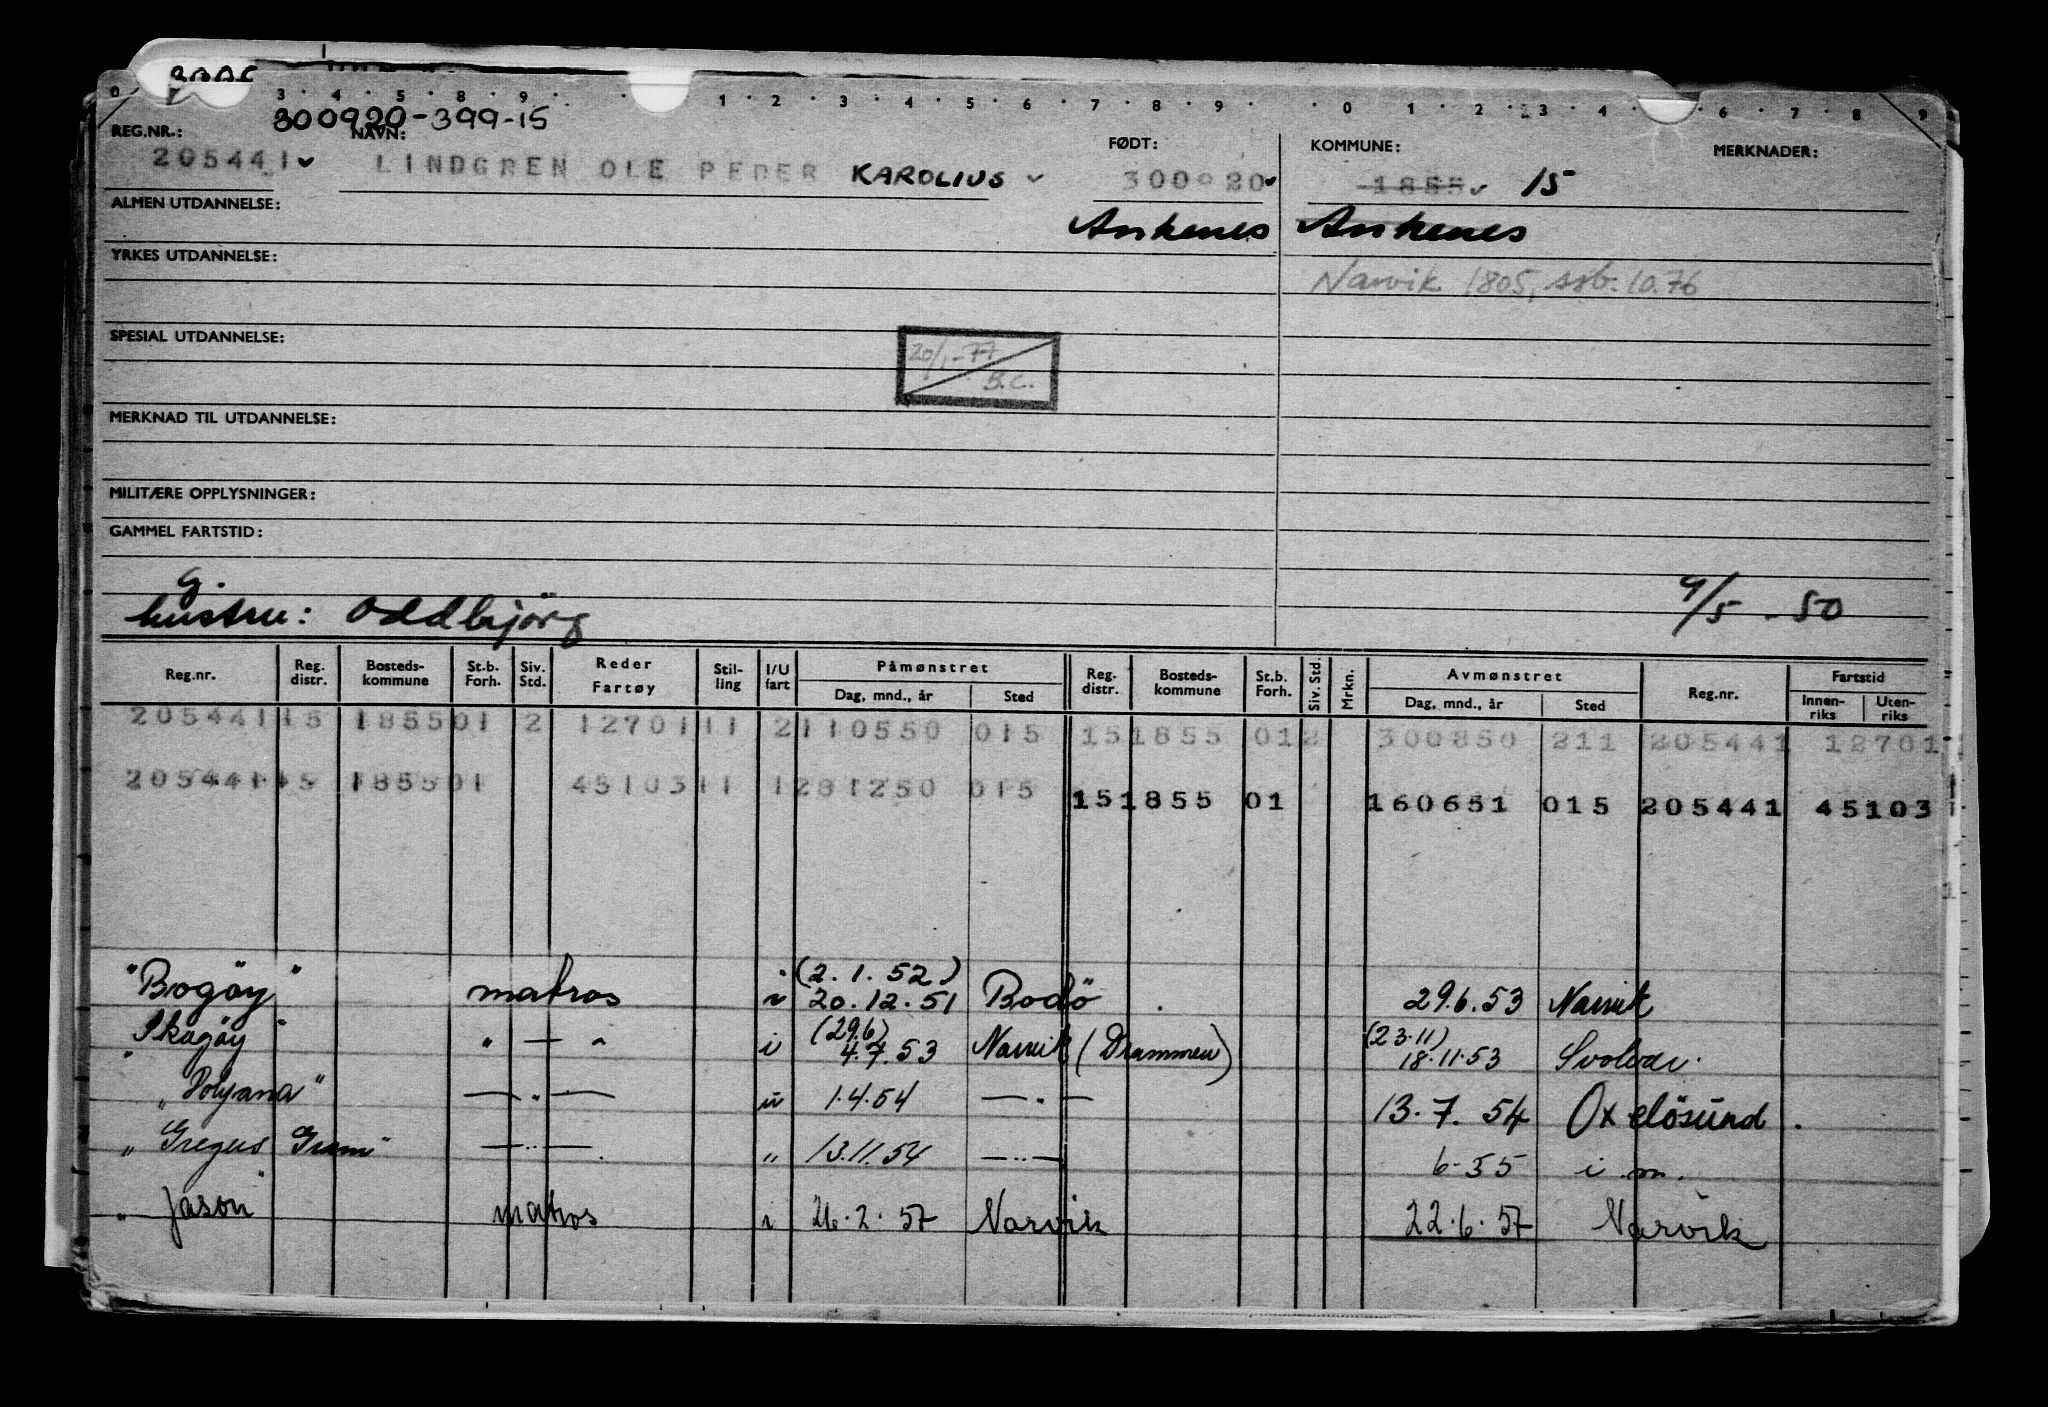 0 3 · 4 · 5 · 8 · 9 · · 1 · 2 · 3 · 4 · 5 · 6 · 7 · 8 · 9 · · 0 1 · 2 · 3 · 4 · 6 · 7 · 8 9
300920-399-15
REG.NR.: NAVN: FØDT: KOMMUNE: MERKNADER:
205441 LINDGREN OLE PEDER KAROLIUS 300920 1855 15
ALMEN UTDANNELSE: Ankenes Ankenes
YRKES UTDANNELSE: Narvik 1805, ssb. 10.76
SPESIAL UTDANNELSE:
20/1-77
B.C.
MERKNAD TIL UTDANNELSE:
MILITÆRE OPPLYSNINGER:
GAMMEL FARTSTID:
g.
hustru: Oddbjörg 9/5 - 50
Reg.nr. Reg. distr. Bosteds-kommune St.b. Forh. Siv. Std. Reder Fartøy Stil-ling I/U fart Påmønstret Dag, mnd., år Sted Reg. distr. Bosteds-kommune St.b. Forh. Siv. Std. Mrkn. Avmønstret Dag, mnd., år Sted Reg.nr. Fartstid Innen-riks Uten-riks
205441 15 1855 01 2 12701 11 2 110550 015 15 1855 01 2 300850 211 205441 12701
205441 15 1855 01 45103 11 1 281250 015 15 1855 01 160651 015 205441 45103
(2.1.52)
"Bogöy" matros i 20.12.51 Bodö 29.6.53 Narvik
(29.6) (23.11)
"Skagöy" " — " i 4.7.53 Narvik (Drammen) 18.11.53 Svolvær.
"Polyana" — " — u 1.4.54 — " — 13.7.54 Oxelösund.
"Gregers Gram" — " — " 13.11.54 — " — 6.55 i m.
"Jason" matros i 26.2.57 Narvik 22.6.57 Narvik